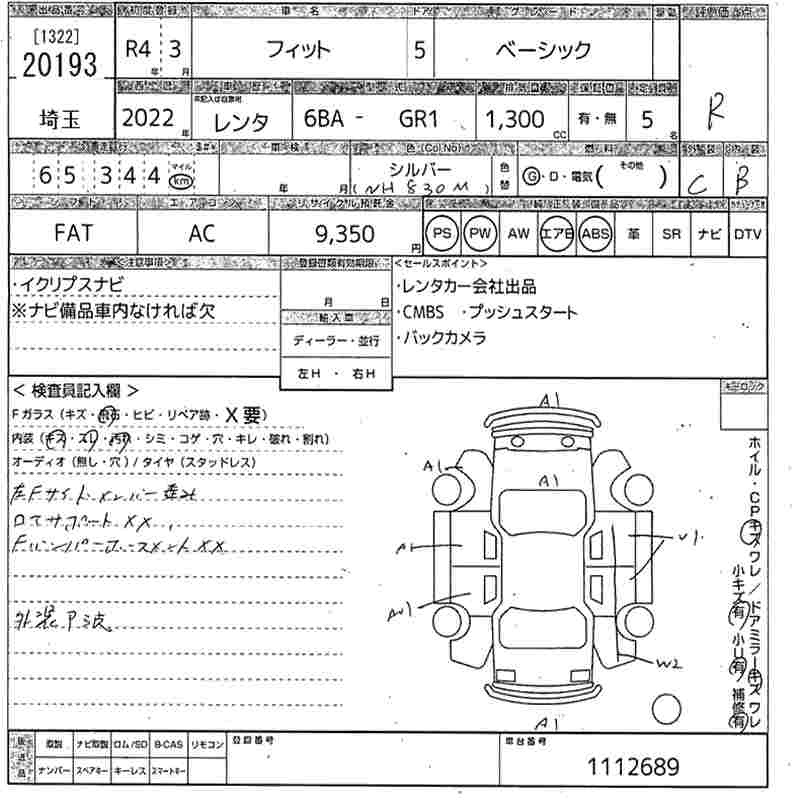 [1322]
20193
埼玉
初度登録 車名 ドア グレード 評価点
R4 年 3 月 フィット 5 ベーシック R
2022 年 レンタ 6BA - GR1 1,300 CC 有・無 5 名
車検 色(Col.No) 燃料 その他
65344 マイル km 年 月 シルバー (NH830M) 色替 G・D・電気( ) C B
シフト エアコン リサイクル預託金
FAT AC 9,350 円 PS PW AW エアB ABS 革 SR ナビ DTV
<注意事項>
・イクリプスナビ
※ナビ備品車内なければ欠
登録書類有効期限
月 日
輸入車
ディーラー・並行
左H ・ 右H
<セールスポイント>
・レンタカー会社出品
・CMBS ・プッシュスタート
・バックカメラ
< 検査員記入欄 >
Fガラス(キズ・飛石・ヒビ・リペア跡・X要)
内装(キズ・スレ・汚れ・シミ・コゲ・穴・キレ・破れ・割れ)
オーディオ(無し・穴)/タイヤ(スタッドレス)
左Fサイドメンバー
サポートXX
外装
A1
A1
A1
A1
U1
W2
A1
キーロック
ホイル・CPキズワレ/ドアミラーキズワレ
小キズ有/小U有/補修有
取説 ナビ取説 ロム/SD B-CAS リモコン
ナンバー スペアキー キーレス スマートキー
登録番号
車台番号
1112689